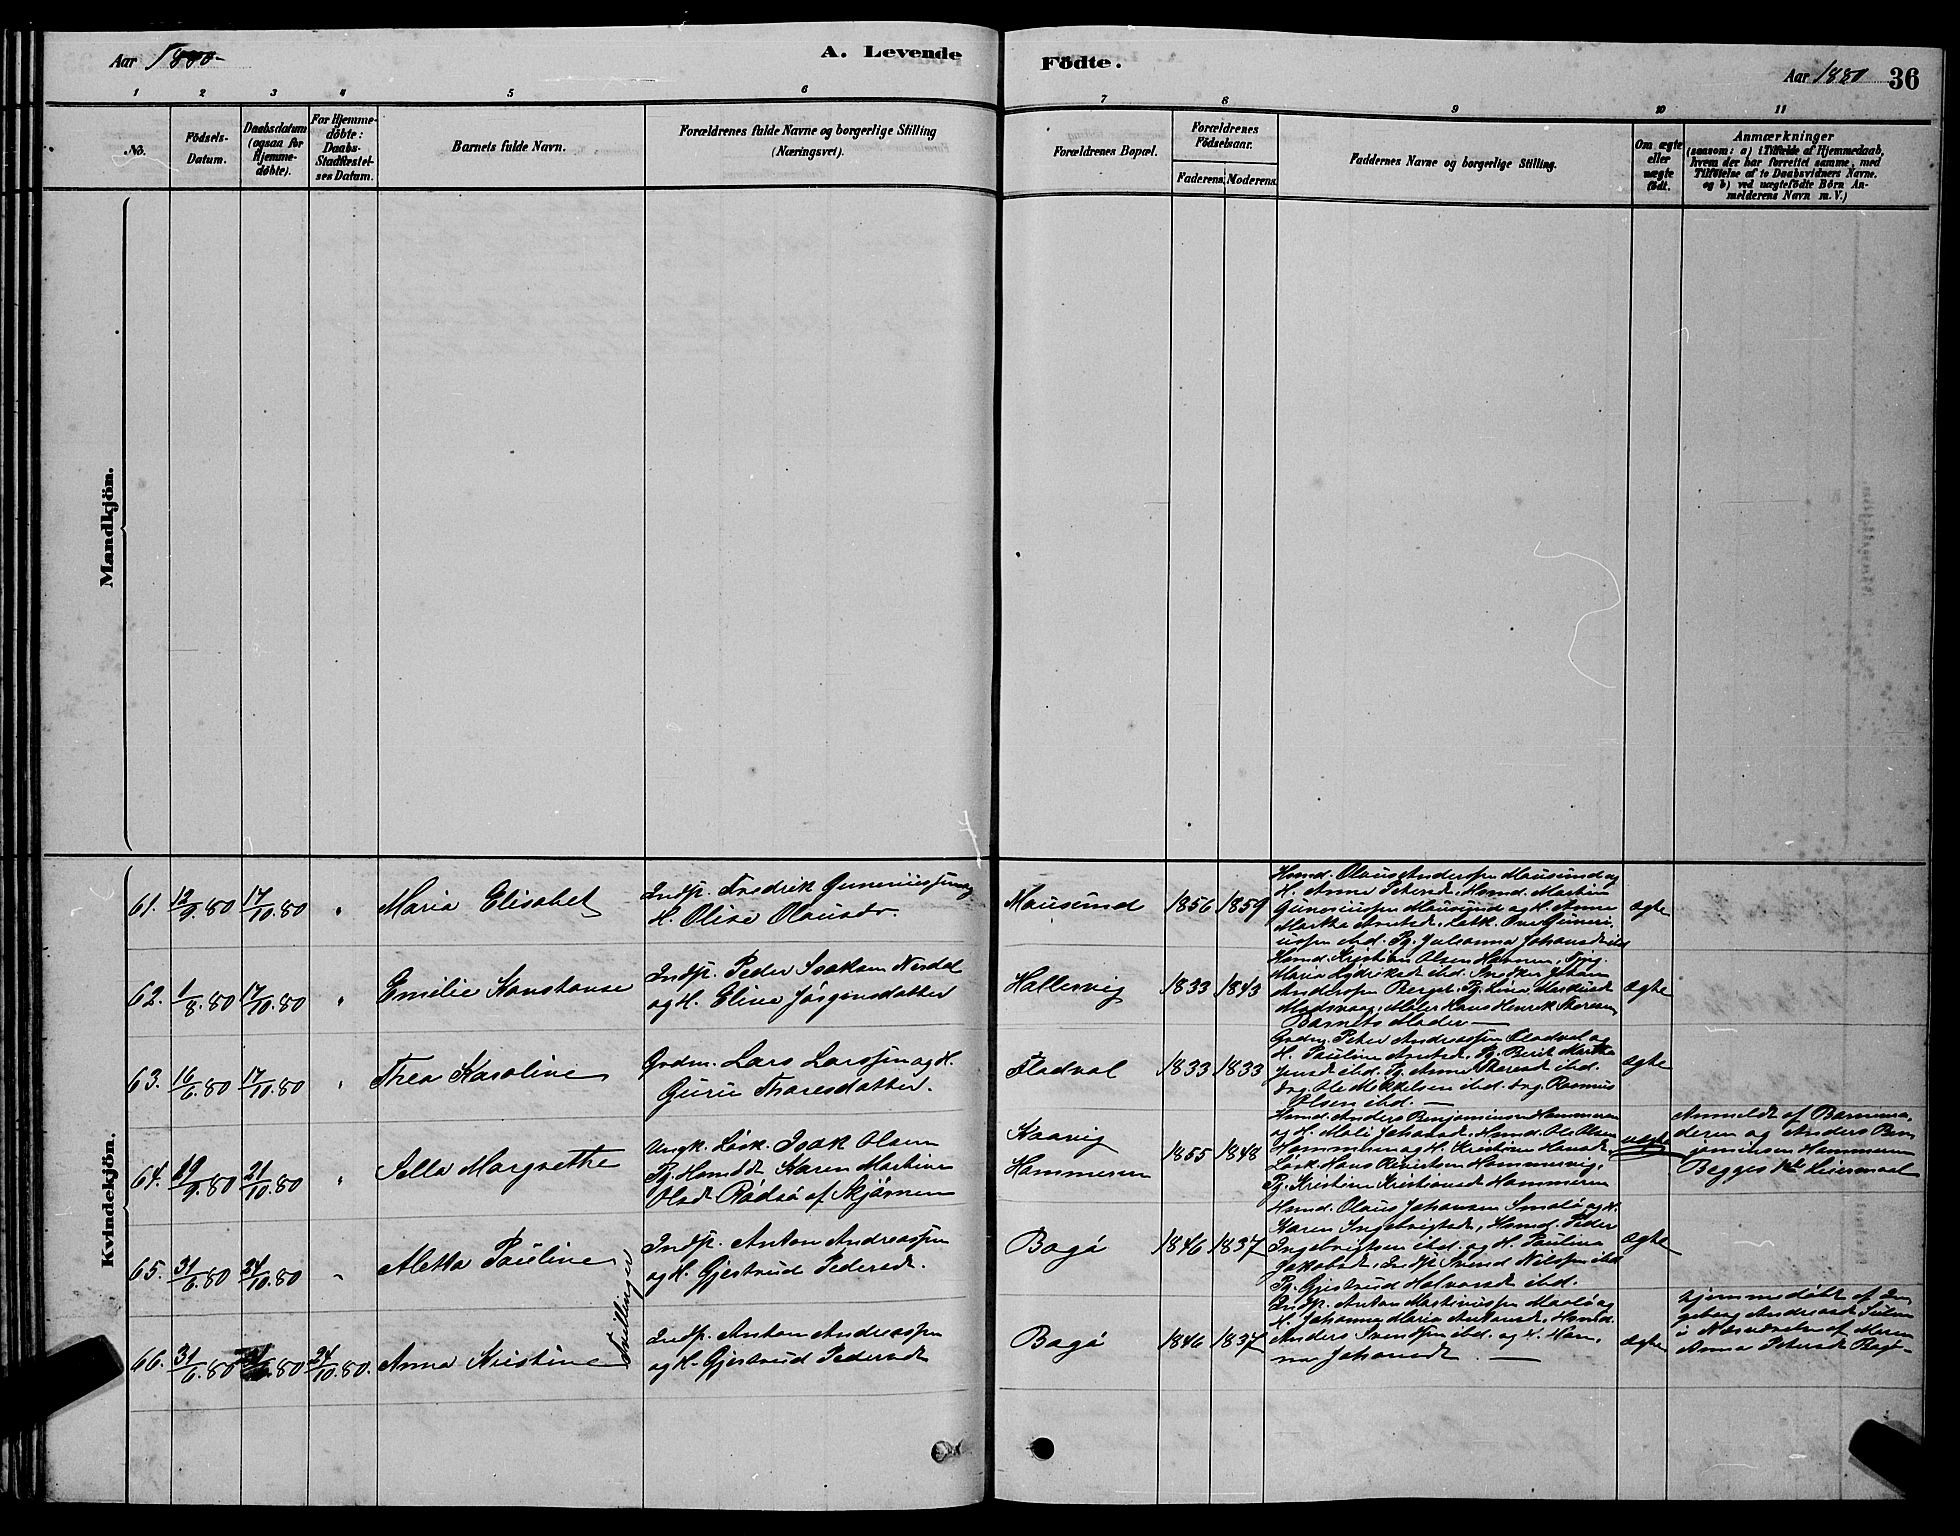 Aar 1880
A. Levende
Födte.
Aar 1880 36
1 2 3 4 5 6
7 8 9 10 11
No.
Födsels-
Datum.
Daabsdatum
(ogsaa for
Hjemme-
döbte).
For Hjemme-
döbte:
Daabs-
Stadfæstel-
ses Datum.
Barnets fulde Navn.
Forældrenes fulde Navne og borgerlige Stilling
(Næringsvei).
Forældrenes Bopæl.
Forældrenes
Födselsaar.
Faderens. Moderens.
Faddernes Navne og borgerlige Stilling.
Om ægte
eller
uægte
födt.
Anmærkninger
(saasom: a) i Tilfælde af Hjemmedaab,
hvem der har forrettet samme, med
Tilföielse af to Daabsvidners Navne.
og b) ved uægtefödte Börn An-
melderens Navn m. V.)
Mandkjön.
Kvindekjön.
61. 12/9.80 17/10.80 " Maria Elisabet
Indp. Fredrik Guneriussen og
H. Olise Olausdr.
Mausund 1856 1859
Hmd. Olaus Anderssen Mausund og
H. Anne Petersdt. Hmd. Martin
Guneriussen Mausund og H. Anne
Martha
ussen ibd. Pg. Julianna Johansdt ibd
ægte
62. 1/8.80 17/10.80 " Emilie Konstanse
Indp. Peder Isaksen Nesdal
og H. Elina Jörginsdatter
Hallesvig 1833 1843
Hmd. Kristian Olsen
Maria
Anderssen Berget. Pg. Lina
Hans Henrik
Barnets Moder —
ægte
63. 16/6.80 17/10.80 " Thea Karoline
Grdm. Lars Larssen og H.
Guru Thoresdatter.
Fladval 1833 1833
Grdm. Peter Andreassen Fladval og
H. Pauline Pg. Berit Martha
Jensdt ibd. Pg. Anne ibd.
Ole Mikkelsen ibd. Rasmus
Olsen ibd. —
ægte
64. 19/9.80 21/10.80 " Sella Margrethe
Ungk. Lösk. Isak Olsen
Pg. Karen Martine
Olsdt Rödsö af Skjörnen
Kaavig
Hammeren
1855 1848
Hmd. Anders Benjaminsen Hammeren
og H. Johansdt. Hmd. Ole Olsen
Hammeren og H. Kristine Hansdt.
Lösk. Hans Hammervig,
Pg. Kristine Kristiansdt Hammeren
uægte
Anmeldt af Barnemo-
deren og Anders Ben-
jaminsen Hammeren
Begges 1ste Leiermaal
65. 31/6.80 24/10.80 " Aletta Pauline
Indp. Anton Andreassen
og H. Gjertrud Pedersdt.
Bogö 1846 1837
Hmd. Olaus Johansen og H.
Karen Ingebrigtsdt, Hmd. Peder
Ingebrigtsen ibd. og H. Paulina
Jakobsdt. Indp. Svend Nilssen ibd
Pg. Gjertrud ibd.
ægte
Tvillinger
66. 31/6.80 .80 24/10.80. Anna Kristine
Indp. Anton Andreassen
og H. Gjertrud Pedersdt
Bogö 1846 1837
Indp. Anton Martinussen og
H. Johanna Maria Hmd.
Anders ibd. og H. Han-
na Johansdt. —
ægte
Hjemmedöbt af In-
geborg Andreasdt
i Nærværelse af Maren
Anna Petersdt Bogö —